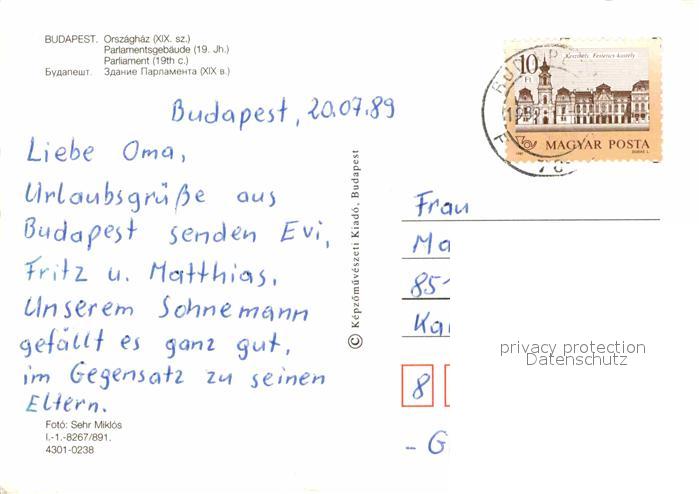 BUDAPEST. Országház (XIX. sz.)
Parlamentsgebäude (19. Jh.)
Parliament (19th c.)
Будапешт. Здание Парламента (XIX в.)
Budapest, 20.07.89
Liebe Oma,
Urlaubsgrüße aus
Budapest senden Evi,
Fritz u. Matthias.
Unserem Sohnemann
gefällt es ganz gut,
im Gegensatz zu seinen
Eltern.
Fotó: Sehr Miklós
I.-1.-8267/891.
4301-0238
© Képzőművészeti Kiadó, Budapest
10
Ft
Keszthely, Festetics-kastély
MAGYAR POSTA
BUDAPE
Frau
Ma
85
Ka
8
- G
privacy protection
Datenschutz